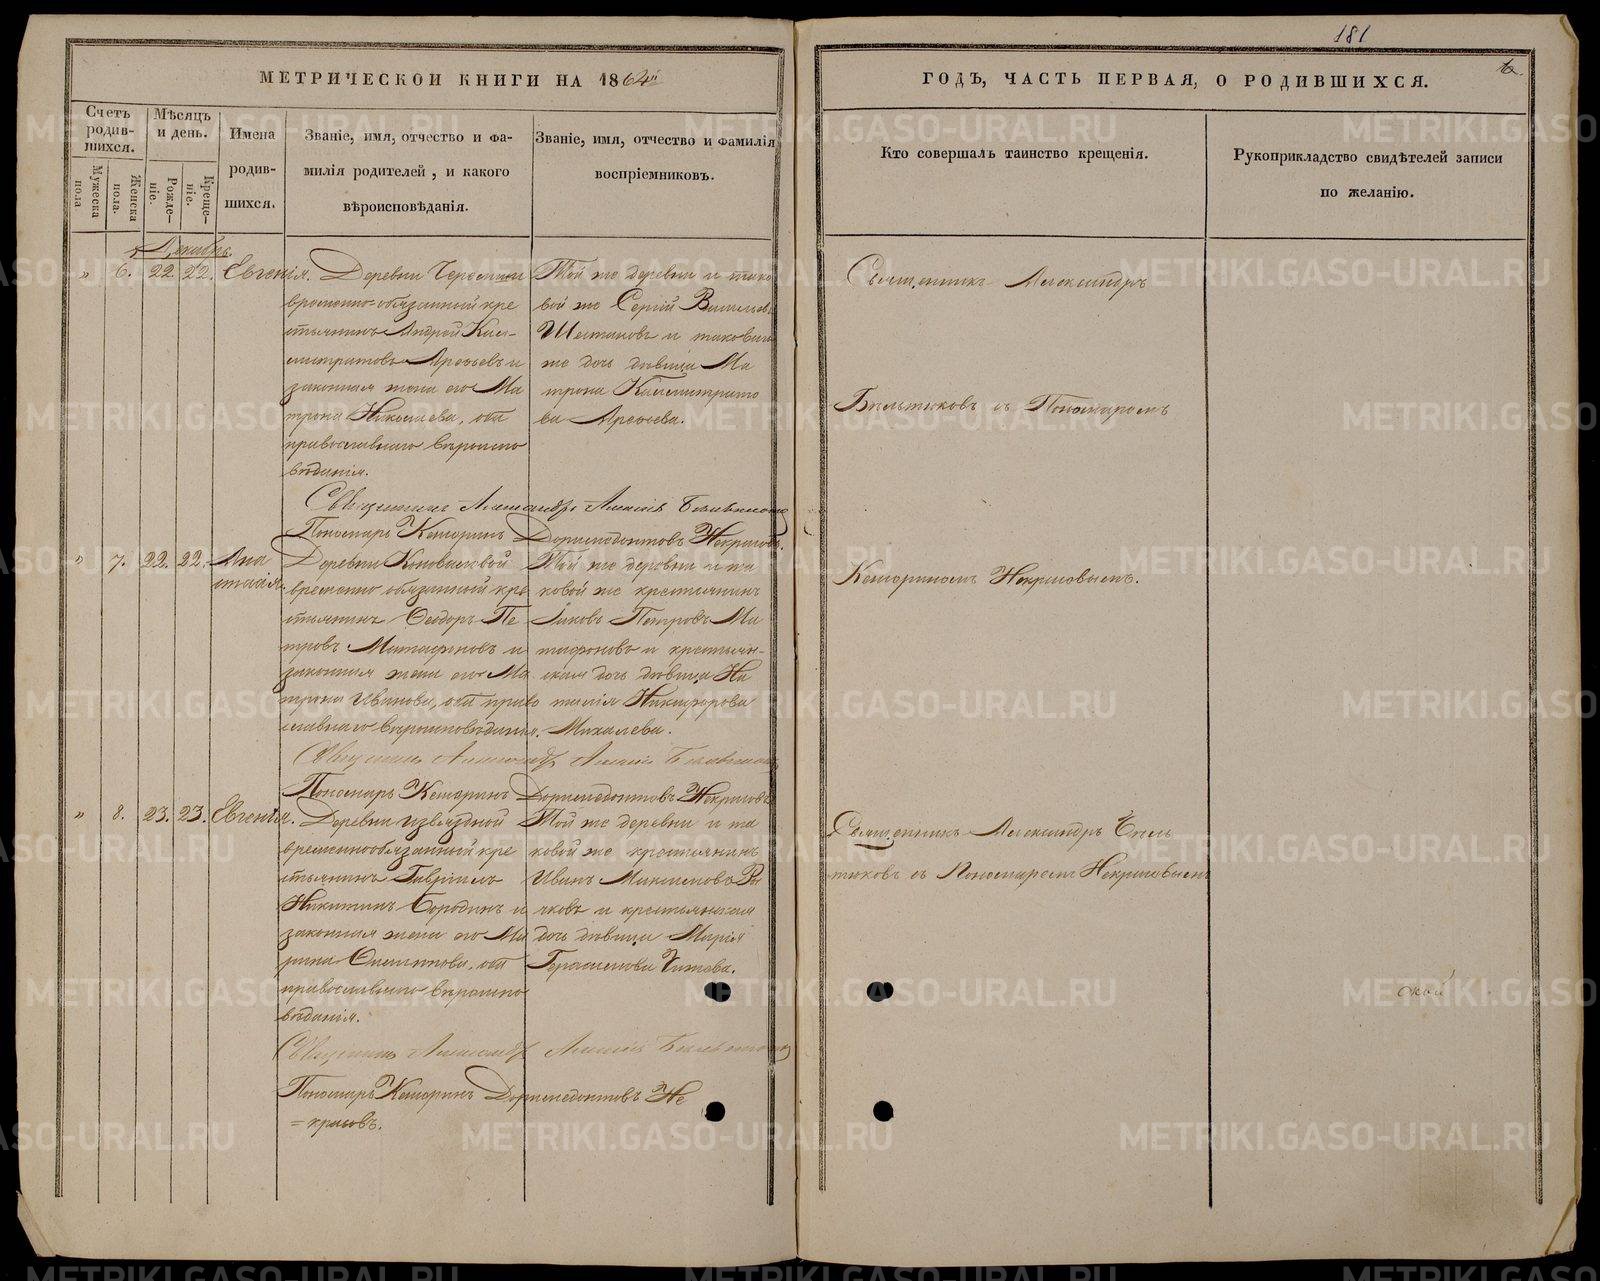 181
МЕТРИЧЕСКОЙ КНИГИ НА 1864й
ГОДЪ, ЧАСТЬ ПЕРВАЯ, О РОДИВШИХСЯ.
Счетъ родив-шихся.
Мѣсяцъ и день.
Мужеска пола
Женска пола.
Рожде-ніе.
Креще-ніе.
Имена
родив-
шихся.
Званіе, имя, отчество и фа-
милія родителей, и какого
вѣроисповѣданія.
Званіе, имя, отчество и фамилія
воспріемниковъ.
Кто совершалъ таинство крещенія.
Рукоприкладство свидѣтелей записи
по желанію.
Декабрь.
" 6. 22. 22. Евгенія.
Деревни
временно-обязанный кре
стьянинъ Андрей Кал-
листратовъ Арефьевъ и
законная жена его Ма
трона Николаева, оба
православнаго вѣроиспо
вѣданія.
Той же деревни и тако
вой же Сергій Васильевъ
и таковая
же дочь дѣвица Ма
трона Каллистрато
ва Арефьева.
Священникъ Александръ
Бѣльтюковъ съ Пономаремъ
Кесариномъ Некрасовымъ.
Священникъ Александръ
Пономарь Кесаринъ Доримедонтовъ Некрасовъ.
" 7. 22. 22. Ана
стасія.
Деревни Коноваловой
временно обязанный кре
стьянинъ Ѳеодоръ Пе
тровъ и
законная жена его Ма
трона Иванова, оба право
славнаго вѣроисповѣданія.
Той же деревни и та
ковой же крестьянинъ
Іаковъ Петровъ
и крестьян-
ская дочь дѣвица На
талія Никифорова
Михалева.
Священникъ Александръ
Пономарь Кесаринъ Доримедонтовъ Некрасовъ
" 8. 23. 23. Евгенія.
Деревни
временнообязанный кре
стьянинъ Гавріилъ
Никитинъ Бородинъ и
законная жена его Ма
рина оба
православнаго вѣроиспо
вѣданія.
Той же деревни и та
ковой же крестьянинъ
Иванъ Максимовъ
и крестьянская
дочь дѣвица Марія
Герасимова
Священникъ Александръ Бѣль
тюковъ съ Пономаремъ Некрасовымъ
Священникъ Александръ
Пономарь Кесаринъ Доримедонтовъ Не
=красовъ.
METRIKI.GASO-URAL.RU